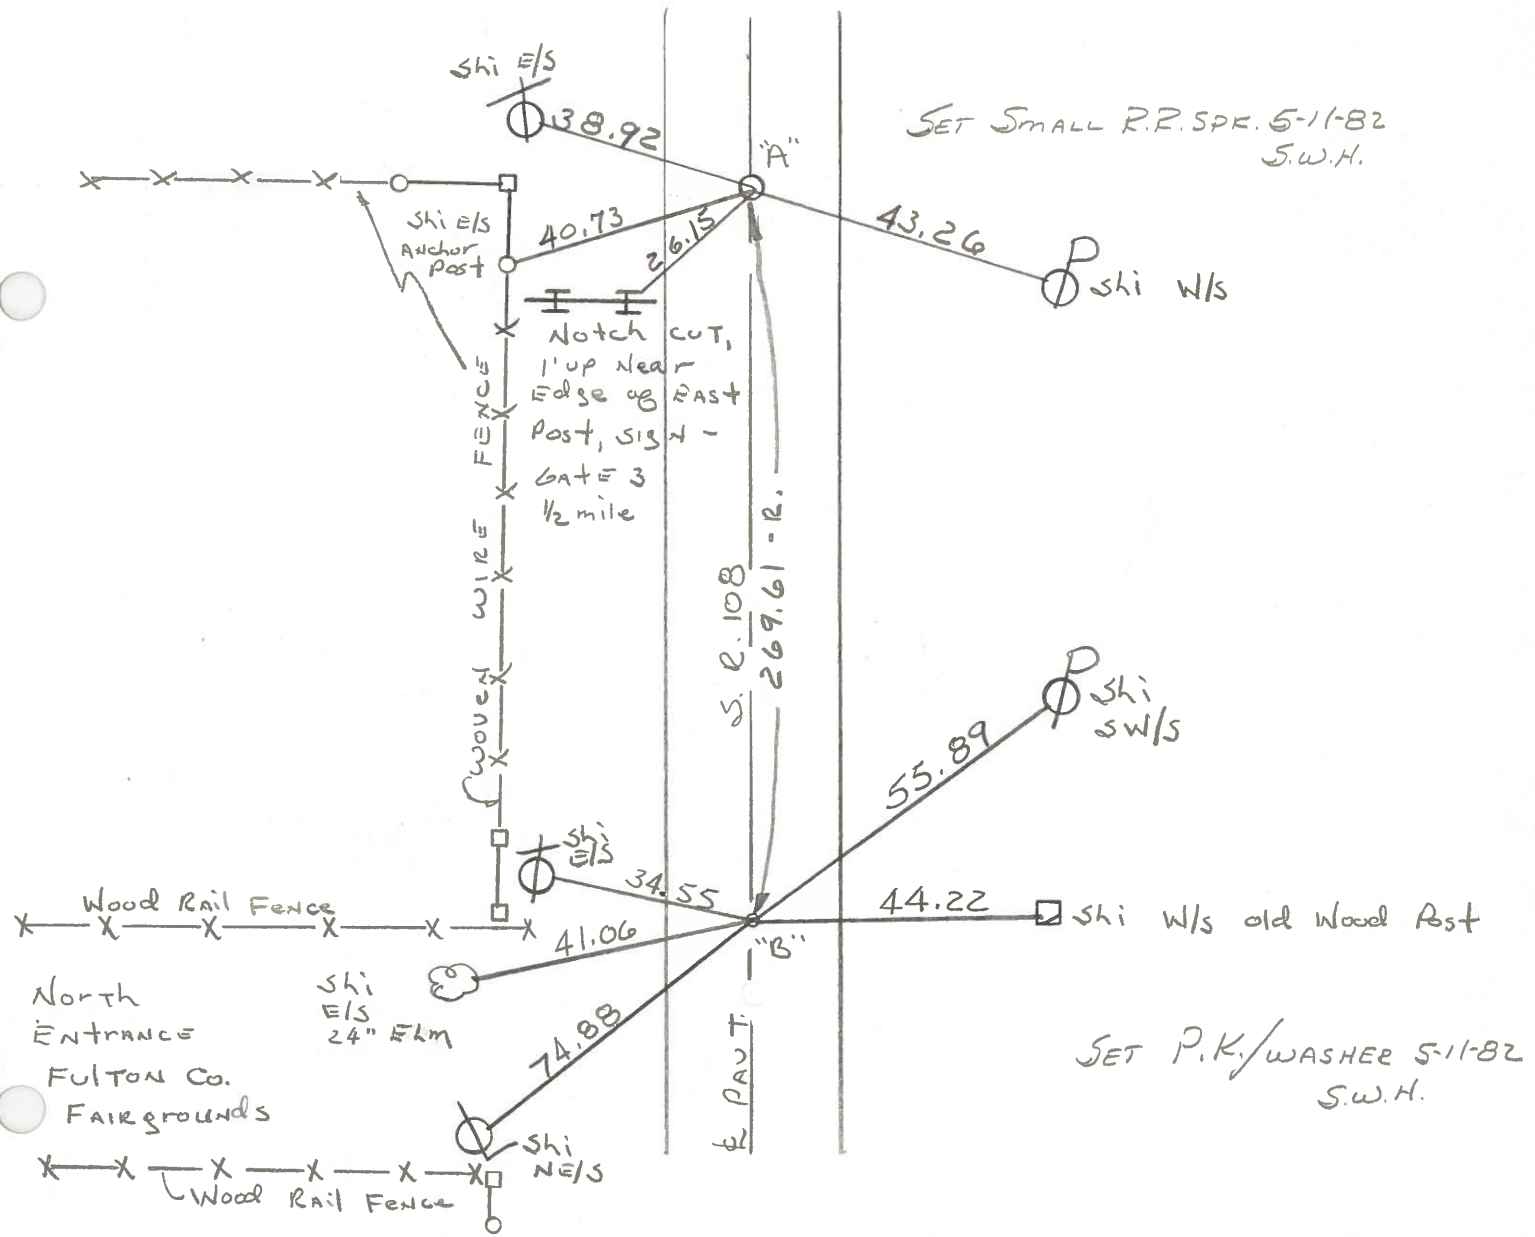 Shi E/S
38.92
"A"
SET SMALL R.R. SPK. 5-11-82
S.W.H.
Shi E/S
Anchor
Post
40.73
26.15
43.26
P
Shi W/S
Notch CUT,
1' up Near
Edge of EAST
Post, SIGN -
GATE 3
1/2 mile
WOVEN WIRE FENCE
S. R. 108
269.61 - R.
P
Shi
SW/S
55.89
Shi
E/S
34.55
44.22
Shi W/S old Wood Post
Wood RAIL FENCE
41.06
"B"
North
ENTRANCE
FULTON Co.
FAIRgrounds
Shi
E/S
24" ELM
74.88
℄ PAVT.
SET P.K./WASHER 5-11-82
S.W.H.
Shi
NE/S
Wood RAIL FENCE